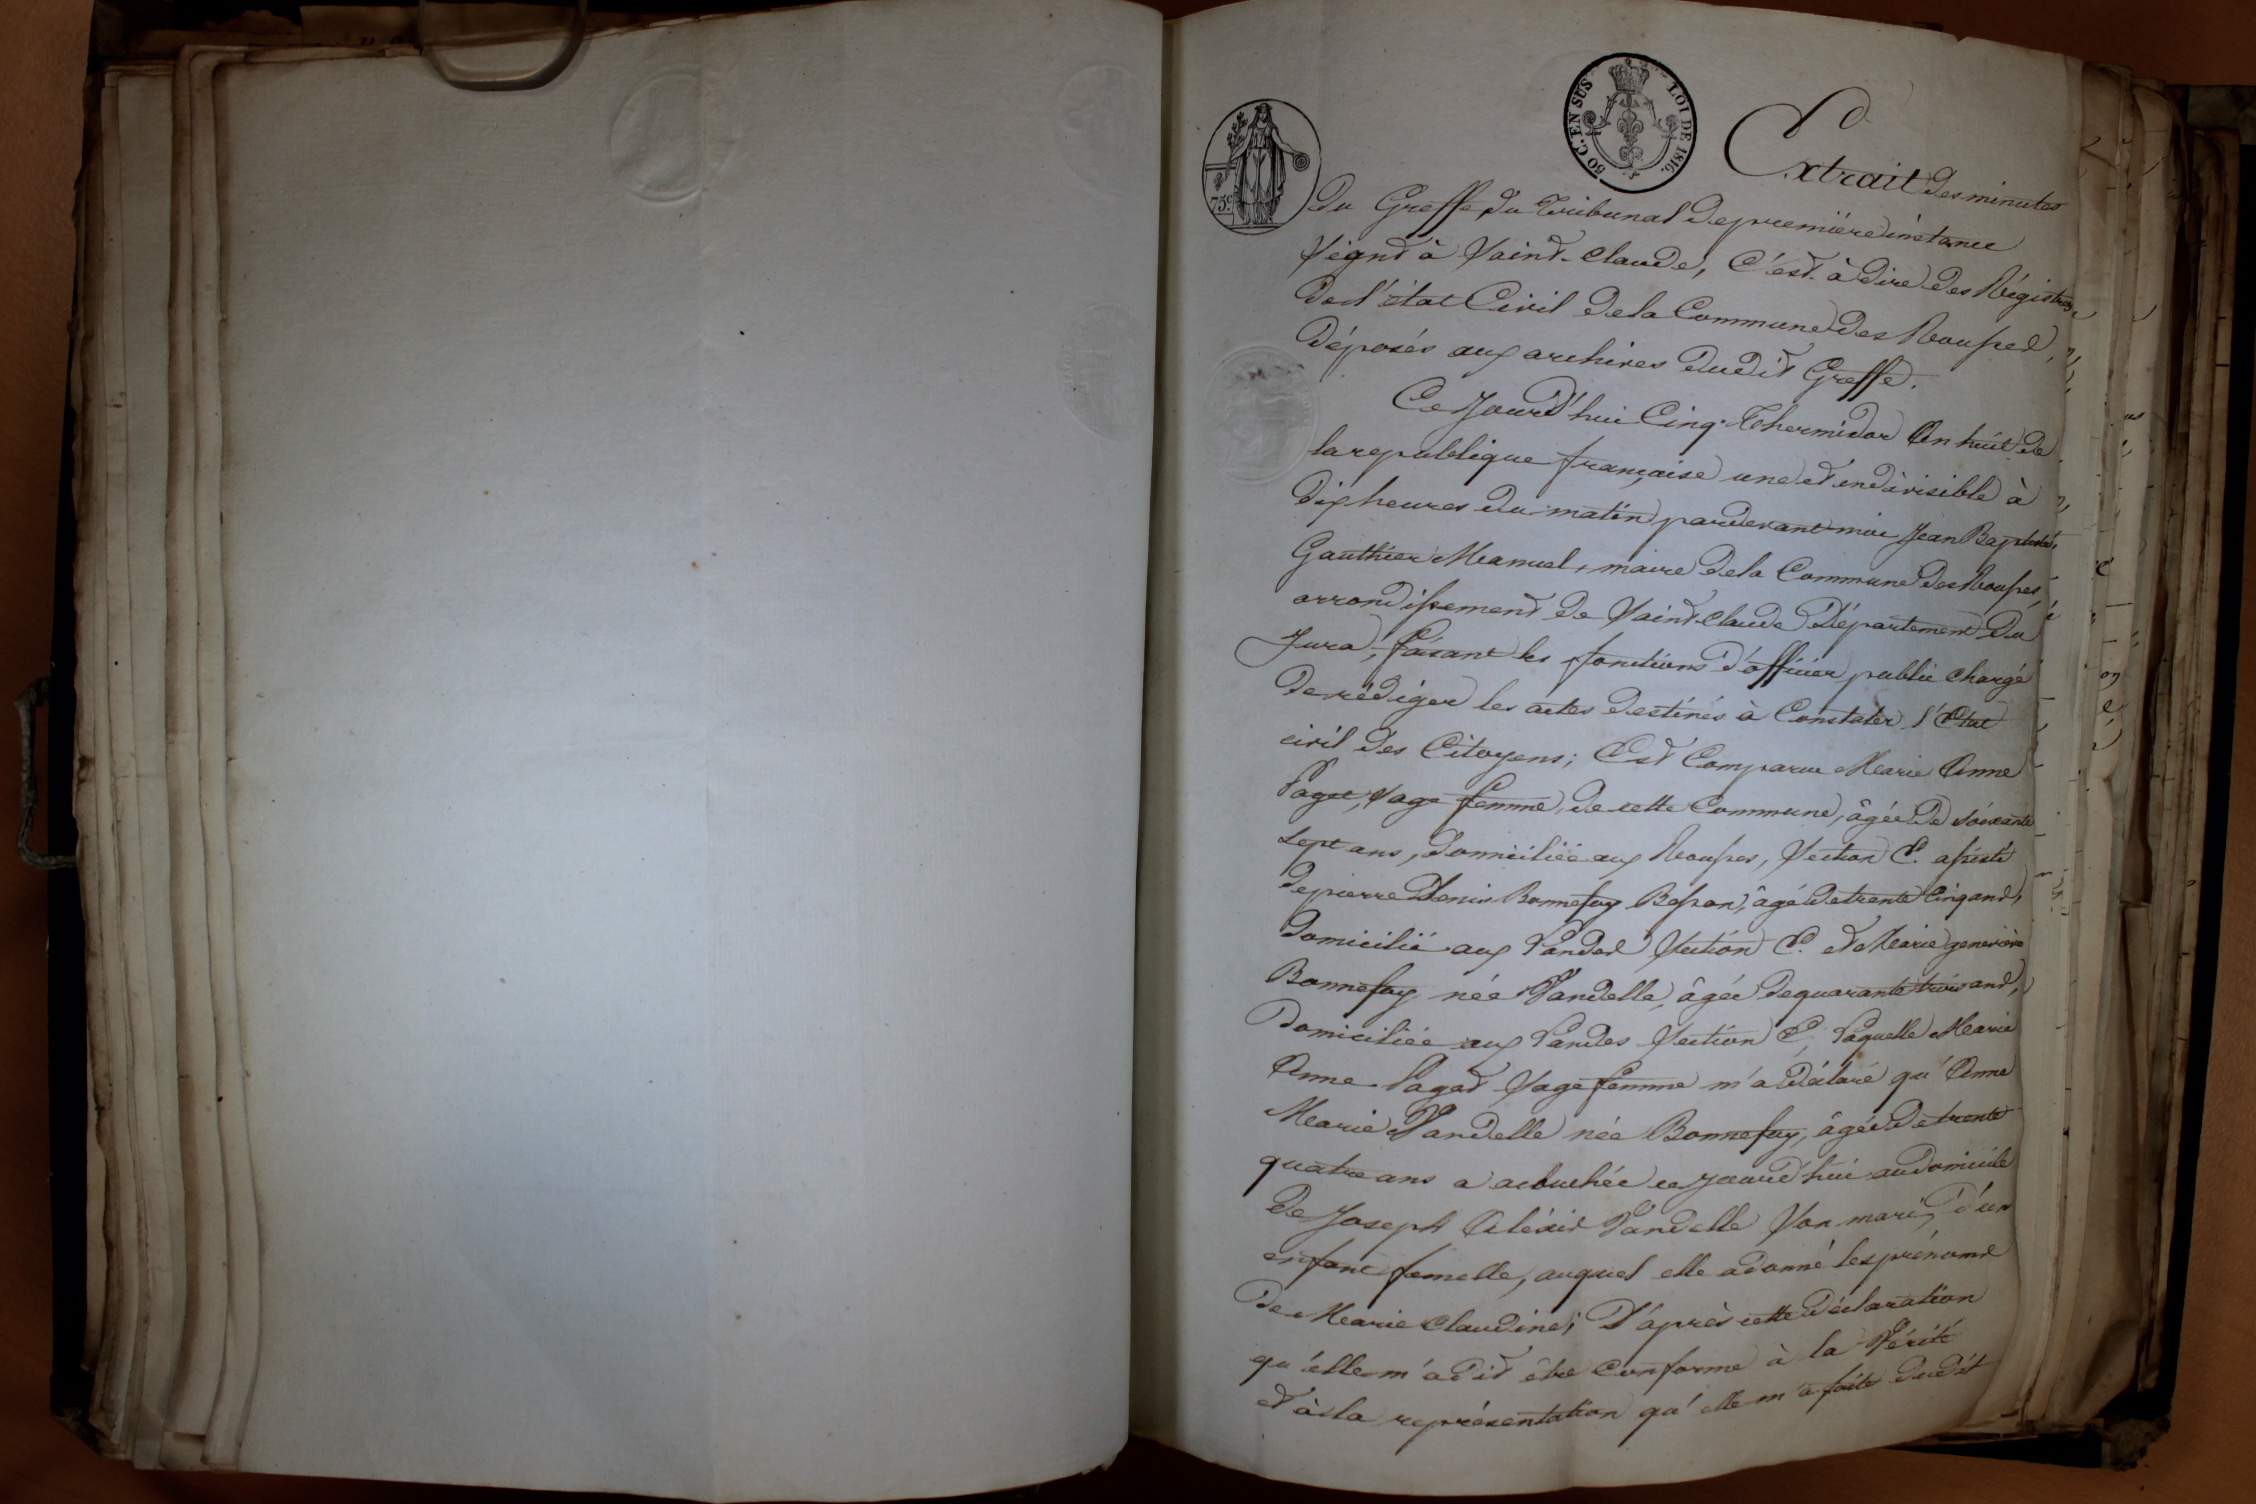 50 C. EN SUS LOI DE 1816.
75c.
Extrait des minutes
du Greffe du Tribunal de premiére instance
séant à Saint-Claude, C'est à dire des Régistres
de l'état Civil de la Commune des Rousses,
déposés aux archives dudit Greffe.
Ce Jourd'hui Cinq Thermidor an huit de
la republique française une et indivisible à
dix heures du matin, pardevant moi Jean Baptiste
Gauthier Manuel, maire de la Commune des Rousses,
arrondissement de Saint-Claude Département du
Jura, faisant les fonctions d'officier public chargé
de rédiger les actes destinés à Constater l'Etat
civil des Citoyens; Est Comparue Marie Anne
Paget, sage femme, de cette Commune, âgée de soixante
sept ans, domiciliée aux Rousses, Section C. assisté
de pierre Denis Bonnefoy Besson, âgé de trente Cinq ans,
domicilié aux Landes Section C. et Marie geneviève
Bonnefoy née Vandelle, âgée de quarante trois ans,
Domiciliée aux Landes Section C, Laquelle Marie
Anne Paget Sage femme m'a déclaré qu'Anne
Marie Vandelle née Bonnefoy, âgée de trente
quatre ans a acouchée ce jourd'hui au domicile
de Joseph Aléxis Vandelle Son mari, d'un
enfant femelle, auquel elle a donné les prénoms
de Marie Claudine; D'après cette déclaration
qu'elle m'a dit être Conforme à la Vérité
et à la représentation qu'elle m'a faite dudit